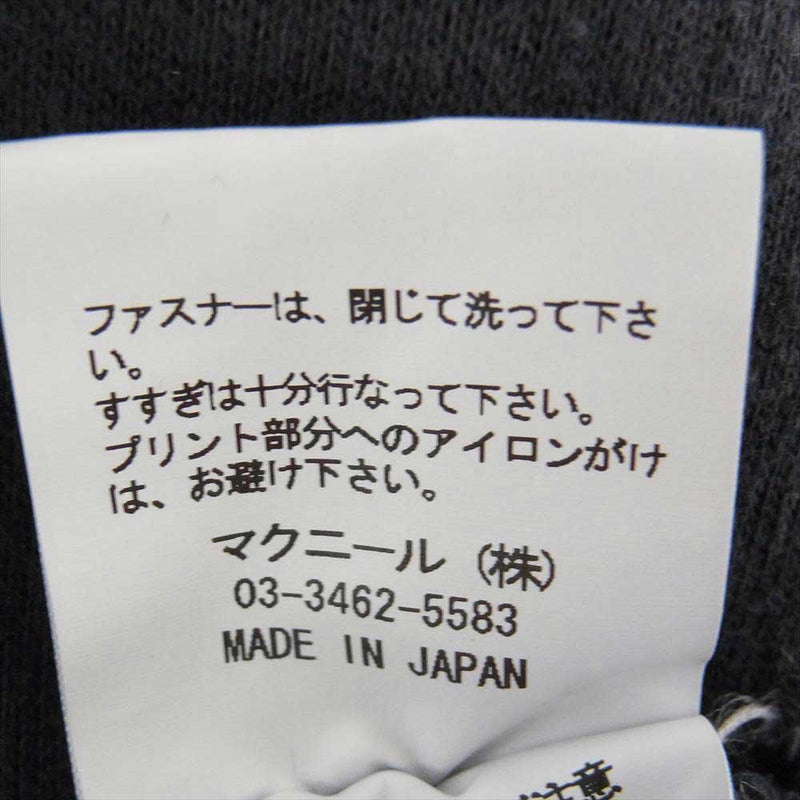 ファスナーは、閉じて洗って下さ
い。
すすぎは十分行なって下さい。
プリント部分へのアイロンがけ
は、お避け下さい。
マクニール (株)
03-3462-5583
MADE IN JAPAN
注意